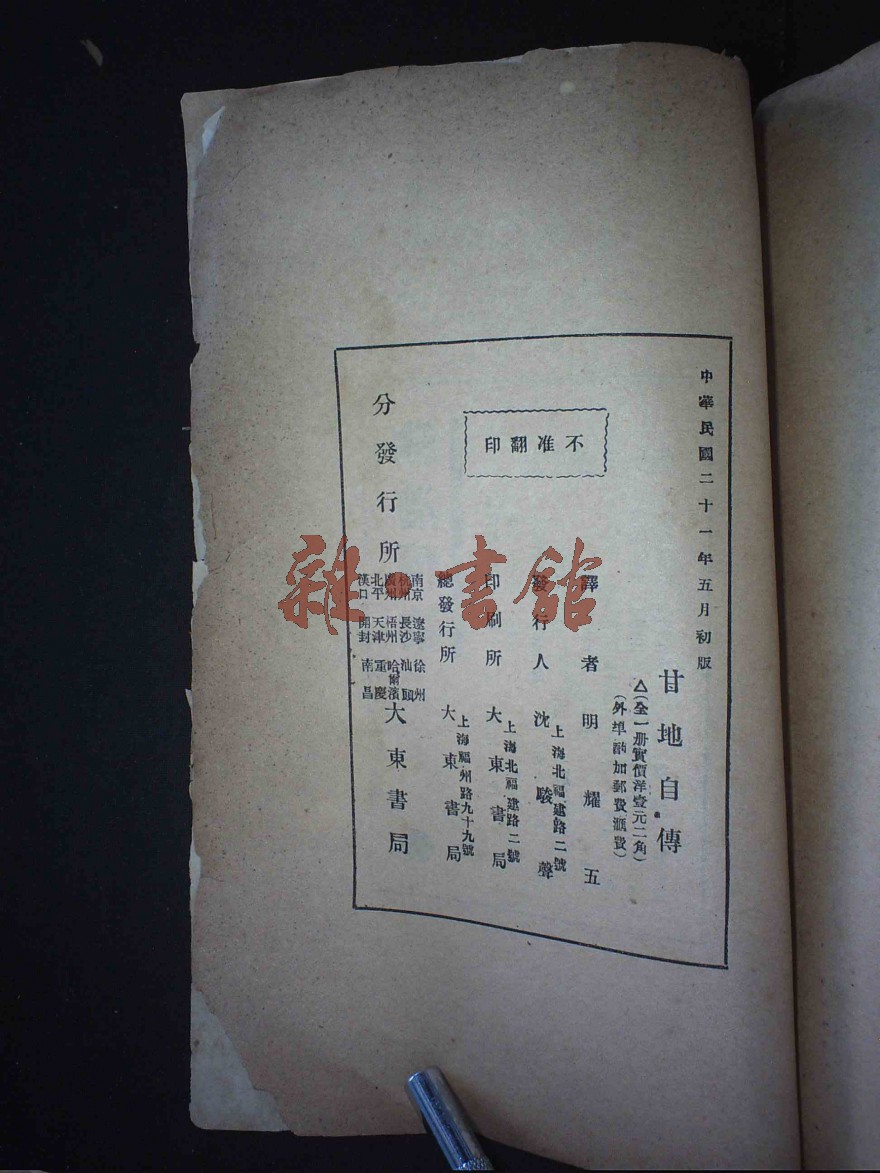 中華民國二十一年五月初版
甘地自傳
△(全一册實價洋壹元二角)
(外埠酌加郵費滙費)
譯者 明耀五
發行人 沈駿聲
上海北福建路二號
印刷所 大東書局
上海北福建路二號
總發行所 大東書局
上海福州路九十九號
不准翻印
分發行所 大東書局
南京 遼寧 徐州
杭州 長沙 汕頭
廣州 梧州 哈爾濱
北平 天津 重慶
漢口 開封 南昌
雜·書館